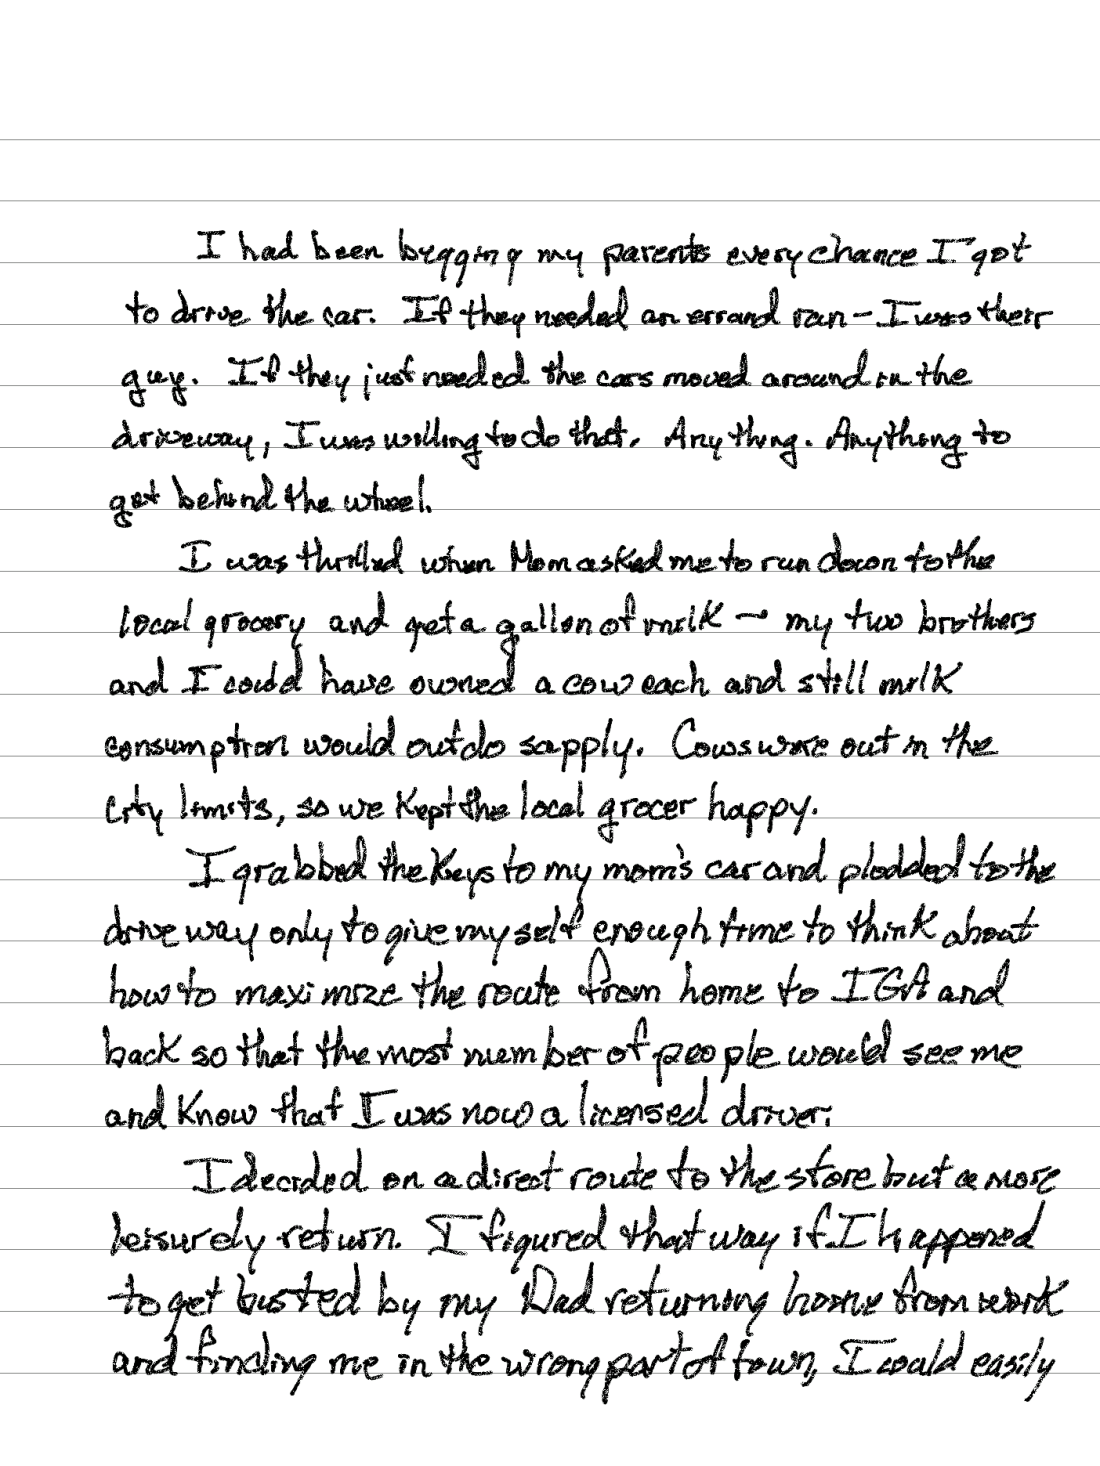 I had been begging my parents every chance I got
to drive the car. If they needed an errand ran - I was their
guy. If they just needed the cars moved around in the
driveway, I was willing to do that. Anything. Anything to
get behind the wheel.
I was thrilled when Mom asked me to run down to the
local grocery and get a gallon of milk - my two brothers
and I could have owned a cow each and still milk
consumption would outdo supply. Cows were out in the
city limits, so we kept the local grocer happy.
I grabbed the keys to my mom's car and plodded to the
driveway only to give myself enough time to think about
how to maximize the route from home to IGA and
back so that the most number of people would see me
and know that I was now a licensed driver.
I decided on a direct route to the store but a more
leisurely return. I figured that way if I happened
to get busted by my Dad returning home from work
and finding me in the wrong part of town, I could easily